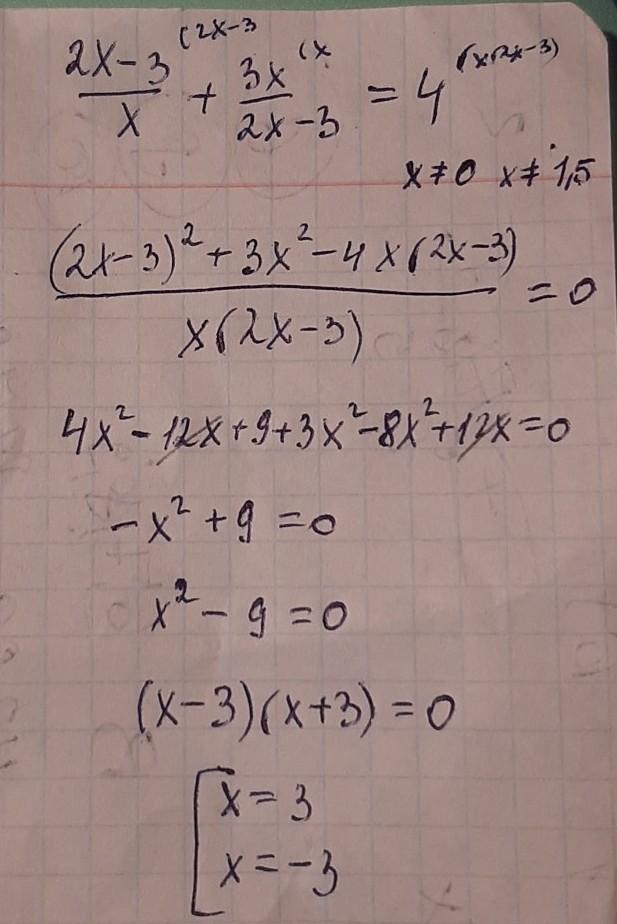 (2x-3)/x ^(2x-3 + 3x/(2x-3) ^(x = 4 ^(x(2x-3)
x ≠ 0 x ≠ 1,5
((2x-3)² + 3x² - 4x(2x-3))/(x(2x-3)) = 0
4x² - 12x + 9 + 3x² - 8x² + 12x = 0
-x² + 9 = 0
x² - 9 = 0
(x-3)(x+3) = 0
[ x = 3
x = -3